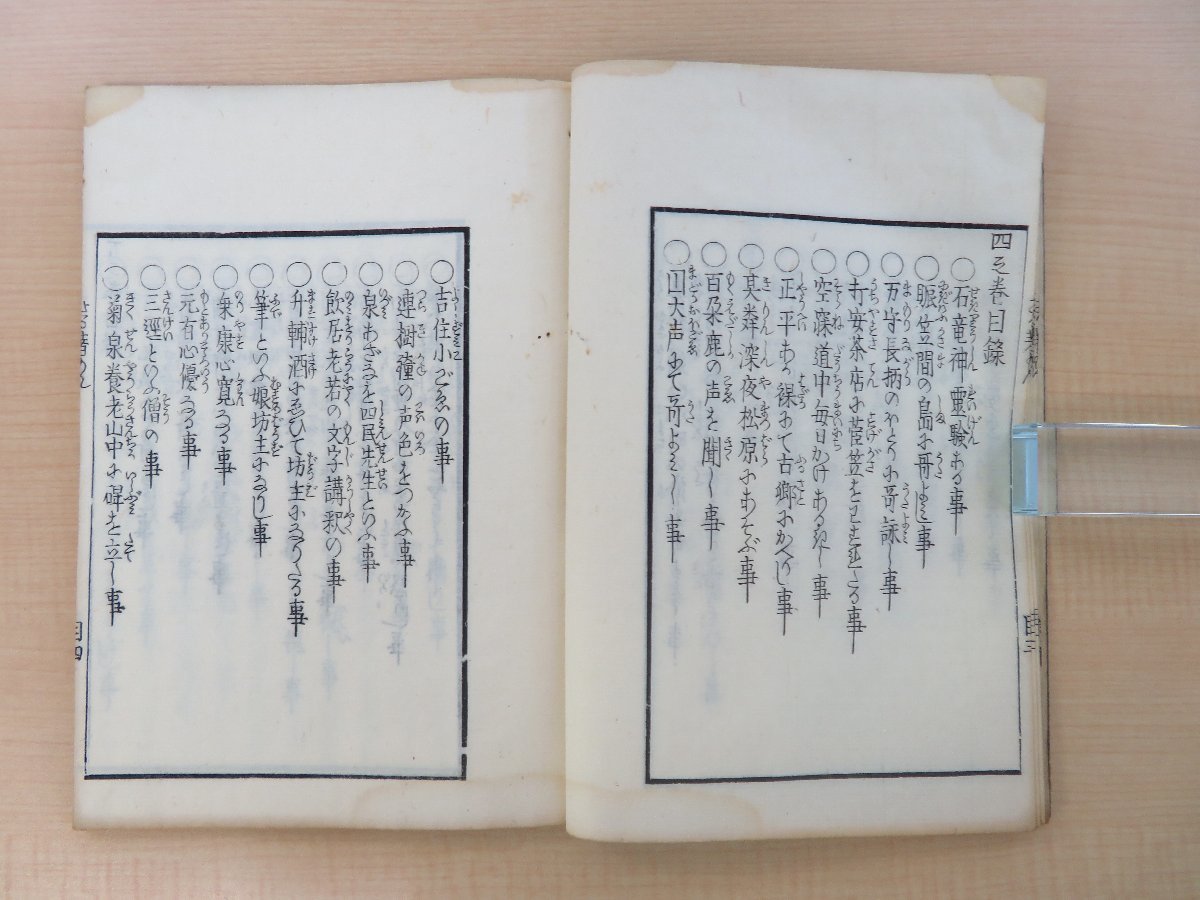 四之巻目録
○石竜神霊験ある事
○賑笠間の島にて哥よみし事
○万守長柄のほとりにて哥を詠し事
○打安茶店に菅笠をわすれたる事
○空寐道中毎日かけある記し事
○正平ある裸にて古郷にかへりし事
○其粦深夜松原にあそぶ事
○百朶鹿の声を聞し事
○大声にて哥よみし事
○吉住小ごゑの事
○連樹鐘の声色をつかふ事
○泉あざなを四民先生といふ事
○飲居老若の文字講釈の事
○升輔酒にゑひて坊主になりたる事
○筆といふ娘坊主になりし事
○康心寛なる事
○元有心優なる事
○三逕といふ僧の事
○菊泉養老山中に碑を立し事
目四